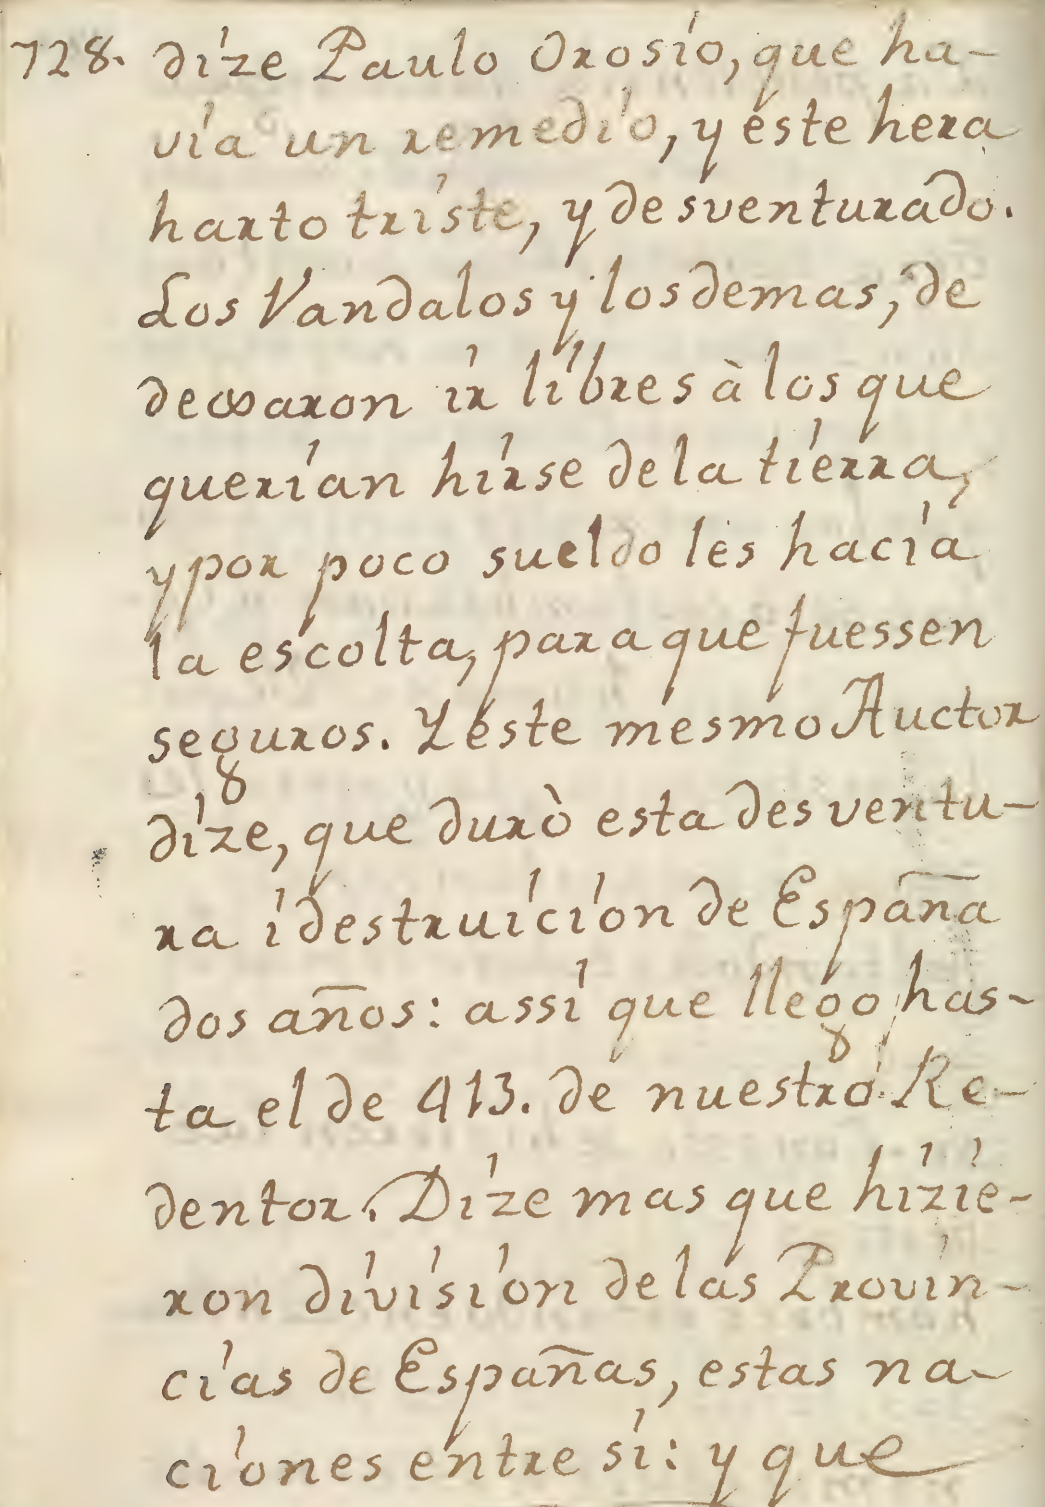 728. dize Paulo Orosio, que ha-
via un remedio, y este hera
harto triste, y desventurado.
Los Vandalos y los demas, de
dexaron ir libres à los que
querian hirse de la tierra,
y por poco sueldo les hacia
la escolta, para que fuessen
seguros. Y este mesmo Auctor
dize, que durò esta desventu-
ra i destruicion de España
dos años: assi que llego has-
ta el de 413. de nuestro Re-
dentor. Dize mas que hizie-
ron division de las Provin-
cias de Españas, estas na-
ciones entre si: y que